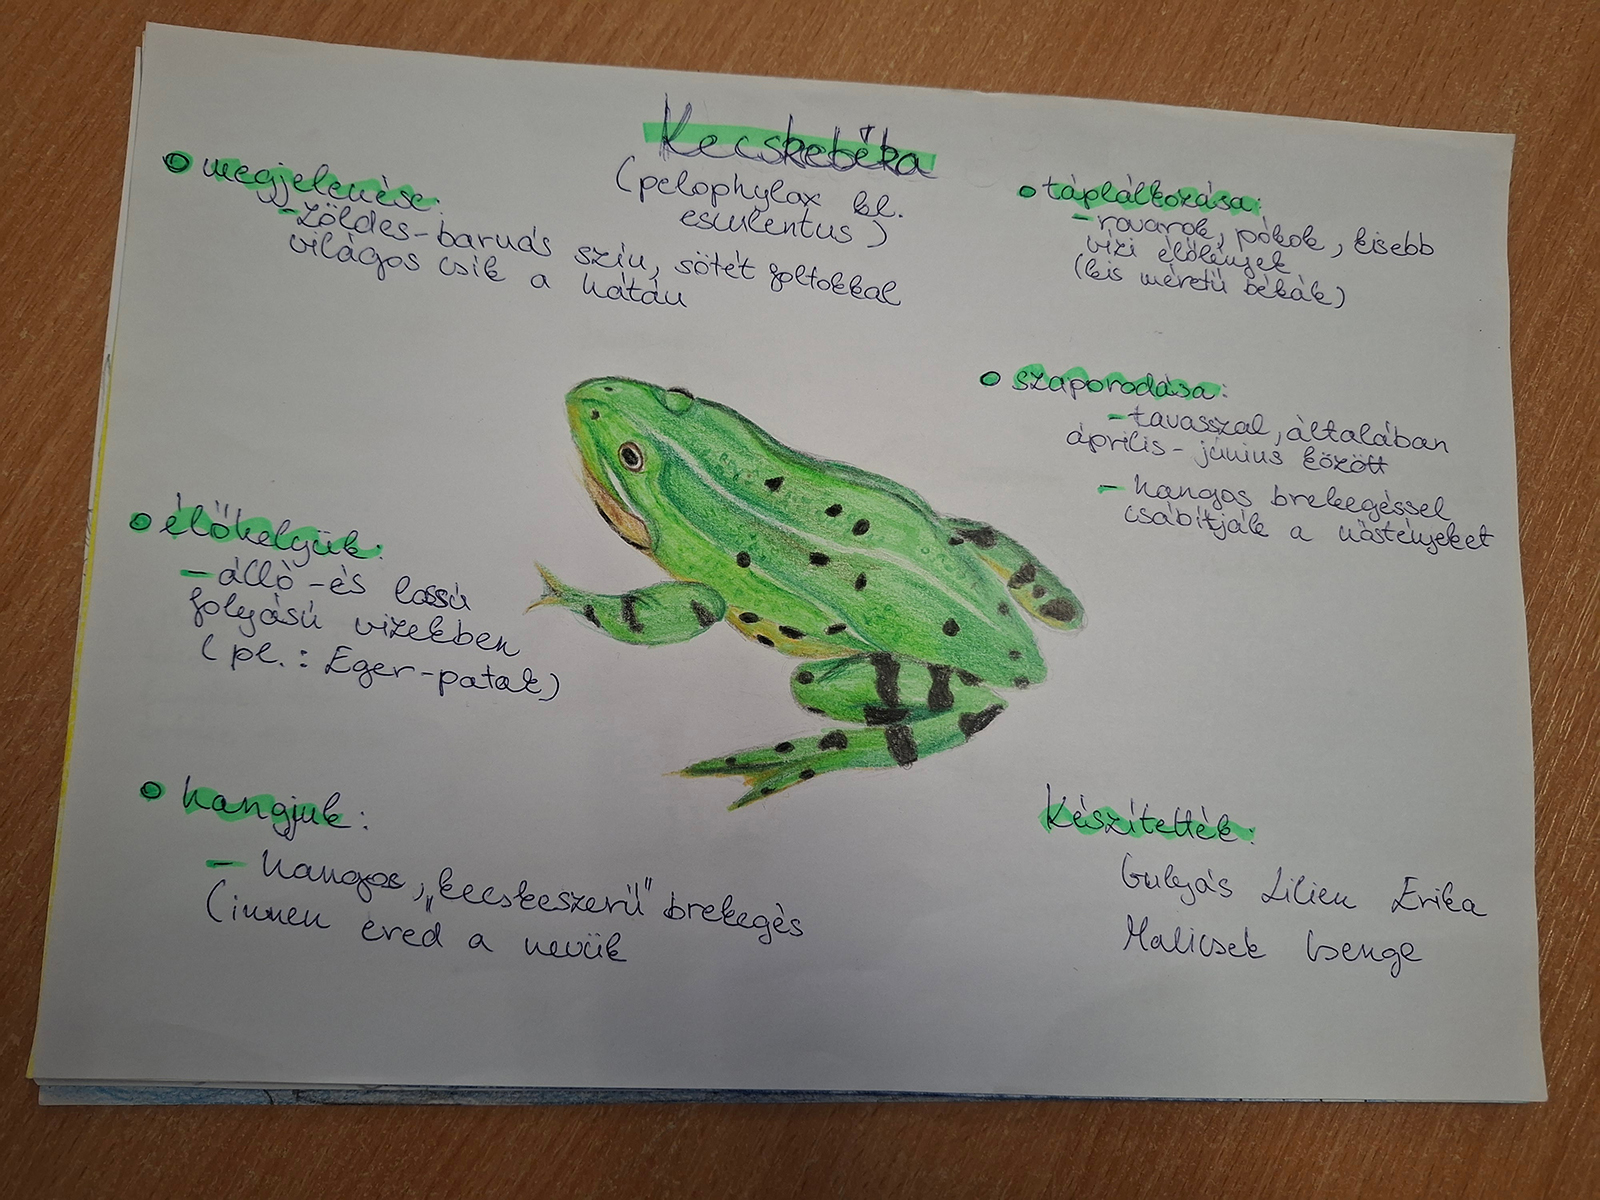 Kecskebéka
(pelophylax kl.
esculentus)
megjelenése:
- zöldes-barnás színű, sötét foltokkal
világos csík a hátán
táplálkozása:
- rovarok, pókok, kisebb
vízi élőlények
(kis méretű békák)
szaporodása:
- tavasszal, általában
április - június között
- hangos brekegéssel
csábítják a nőstényeket
élőhelyük:
- álló -és lassú
folyású vizekben
(pl.: Eger-patak)
hangjuk:
- hangos, „kecskeszerű" brekegés
(innen ered a nevük
Készítették:
Gulyás Lilien Erika
Malicsek Csenge